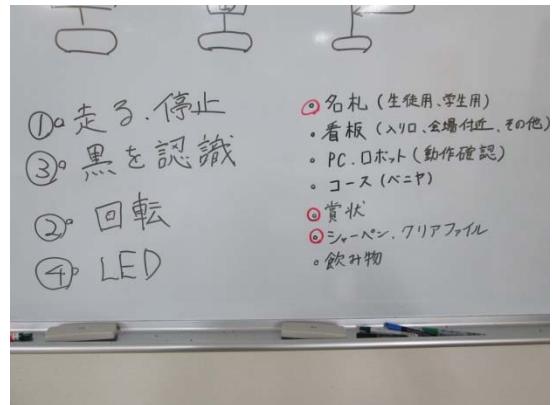 ①。走る、停止
③。黒を認識
②。回転
④。LED
。名札（生徒用、学生用）
・看板（入り口、会場付近、その他）
・PC、ロボット（動作確認）
・コース（ベニヤ）
。賞状
。シャーペン、クリアファイル
。飲み物